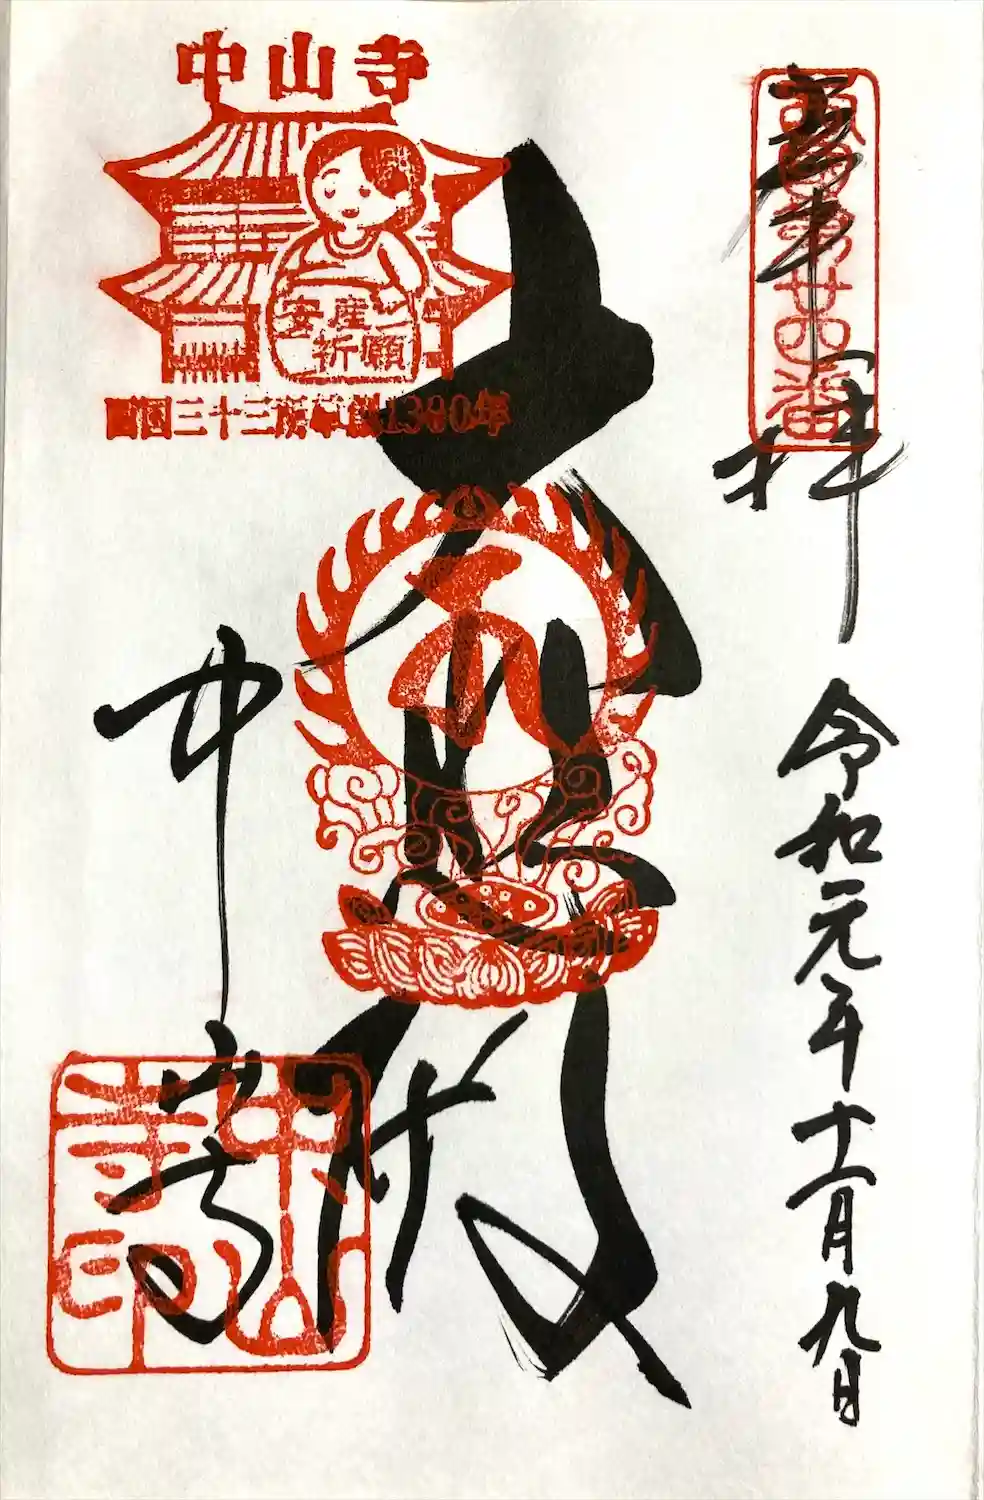 西國第廿四番
奉拝
令和元年十一月九日
大悲殿
中山寺
安産
祈願
西国三十三所草創1300年
中山寺
中山寺印